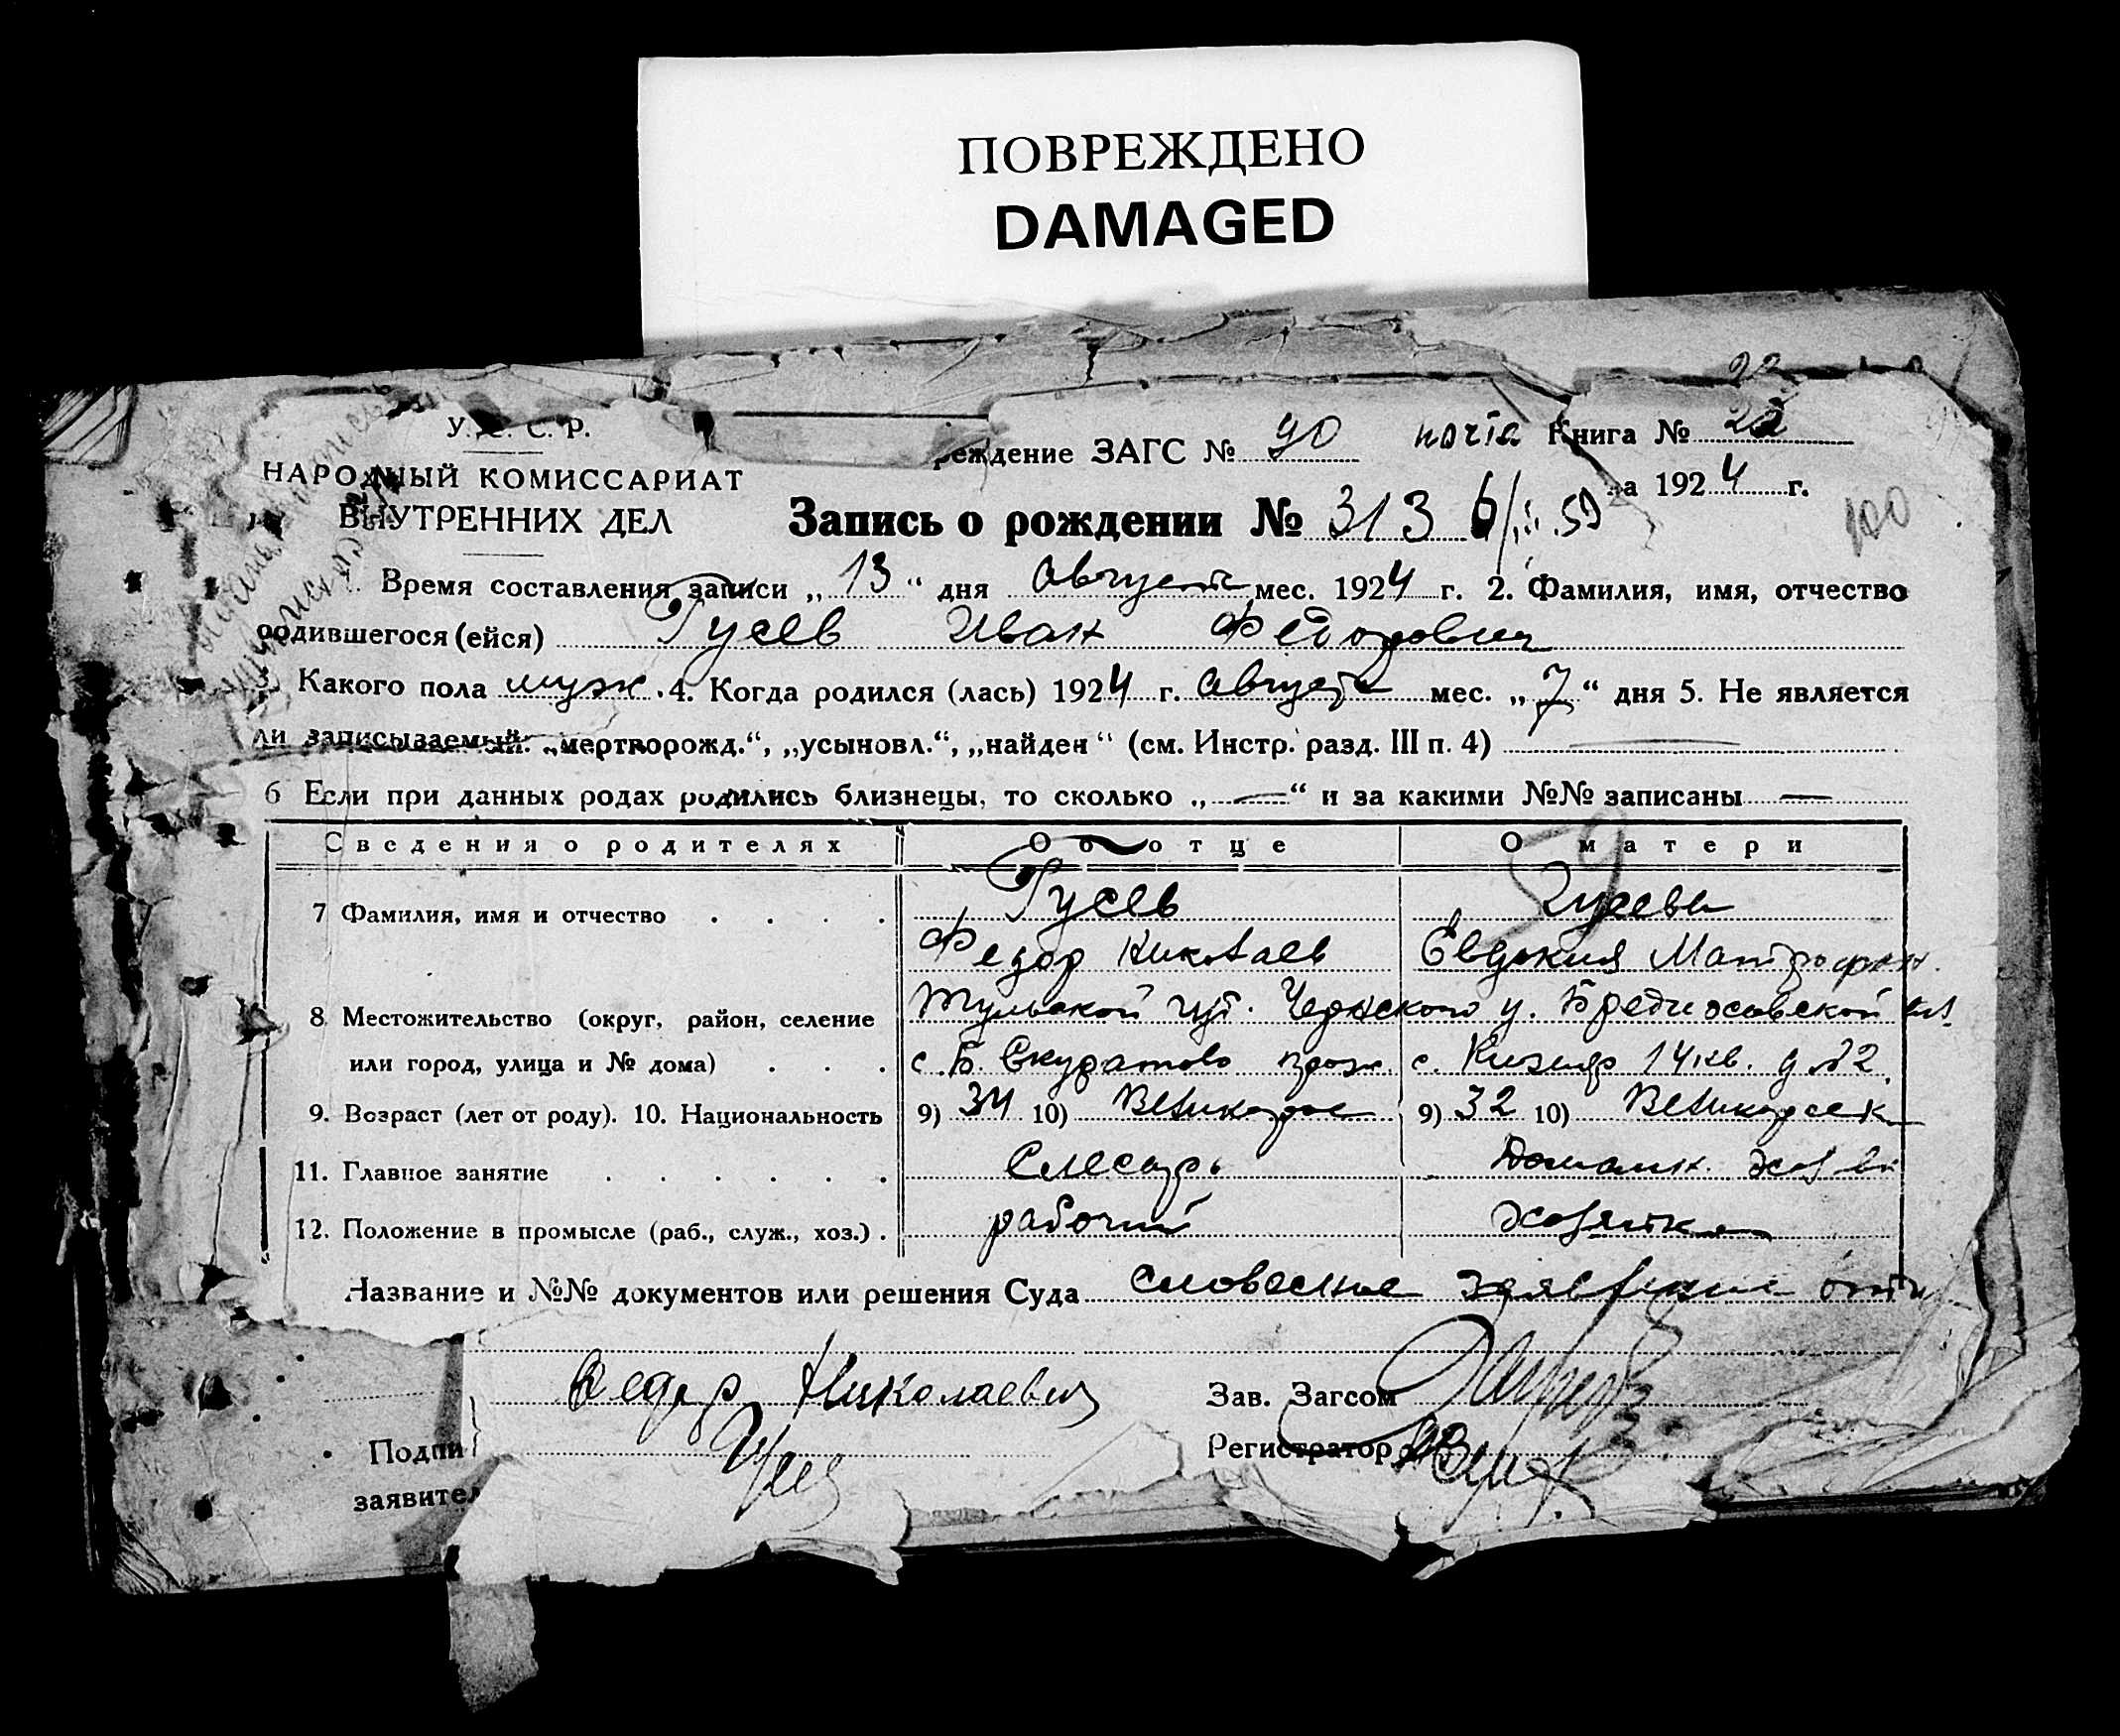 ПОВРЕЖДЕНО
DAMAGED
У. С. С. Р.
НАРОДНЫЙ КОМИССАРИАТ
ВНУТРЕННИХ ДЕЛ
реждение ЗАГС № 90 Книга № 22
за 1924 г.
Запись о рождении № 313
100
Время составления записи „13“ дня Август мес. 1924 г. 2. Фамилия, имя, отчество
родившегося (ейся) Гусев Иван Федорович
Какого пола муж. 4. Когда родился (лась) 1924 г. Август мес. „7“ дня 5. Не является
ли записываемый: „мертворожд.“, „усыновл.“, „найден“ (см. Инстр. разд. III п. 4) —
6 Если при данных родах родились близнецы, то сколько „—“ и за какими №№ записаны —
Сведения о родителях Об отце О матери
59
7 Фамилия, имя и отчество . . . . Гусев Гусева
Федор Николаев Евдокия Митрофан.
8 Местожительство (округ, район, селение Тульской губ. Чернского у. вол.
или город, улица и № дома) . . . с. Б. Скуратово прож. с. 14 кв. д № 2
9. Возраст (лет от роду). 10. Национальность 9) 34 10) Великорос 9) 32 10) Великорос
11. Главное занятие . . . . . . Слесарь Домашн. хоз
12. Положение в промысле (раб., служ., хоз.) . рабочий хозяйка
Название и №№ документов или решения Суда словесное заявление отца
Федор Николаевич
Зав. Загсом
Подпи Гусев Регистратор
заявител